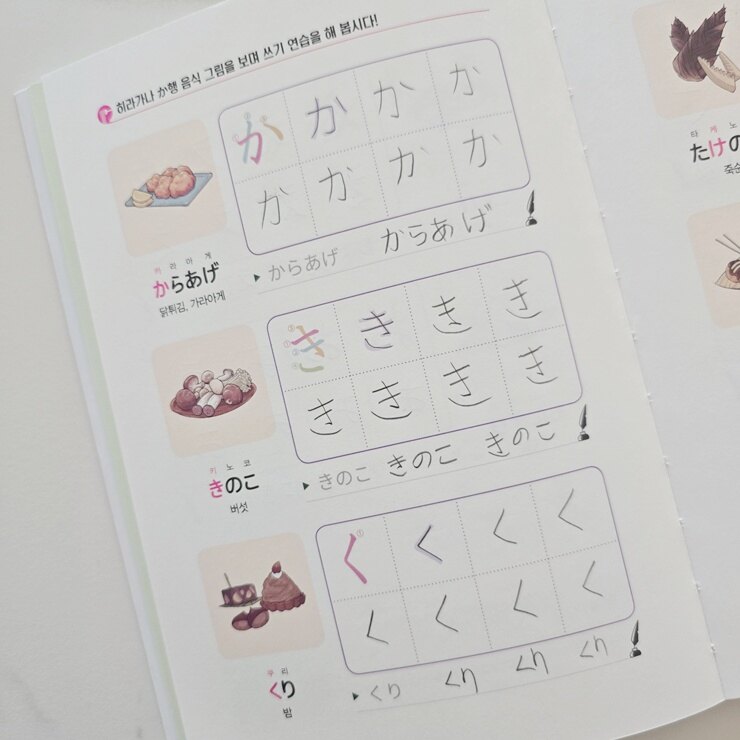 히라가나 か행 음식 그림을 보며 쓰기 연습을 해 봅시다!
か か か か
か か か か
카 라 아 게
からあげ
닭튀김, 가라아게
からあげ からあげ
き き き き
き き き き
키 노 코
きのこ
버섯
きのこ きのこ きのこ
く く く く
く く く く
쿠 리
くり
밤
くり くり くり くり
타 케 노
たけの
죽순